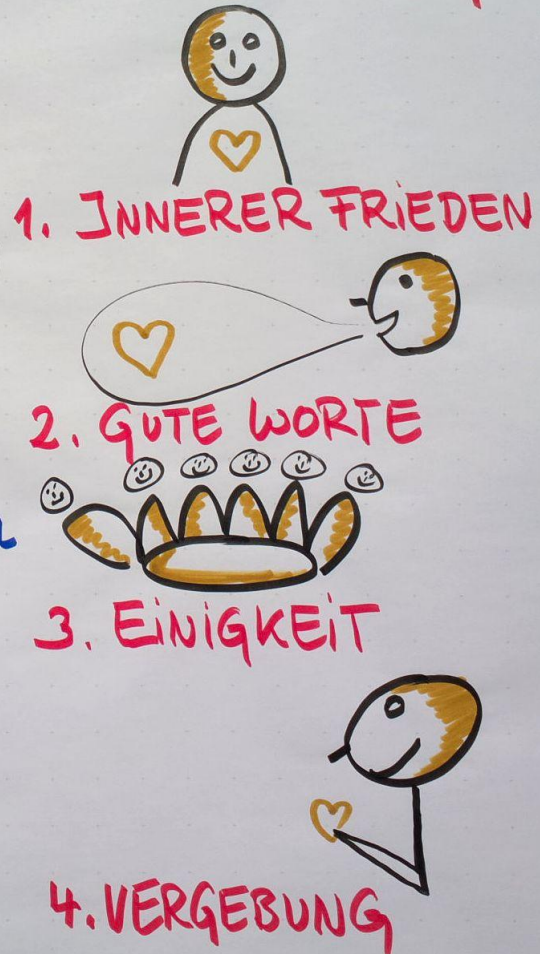 1. INNERER FRiEDEN
2. GUTE WORTE
3. EiNiGKEiT
4. VERGEBUNG